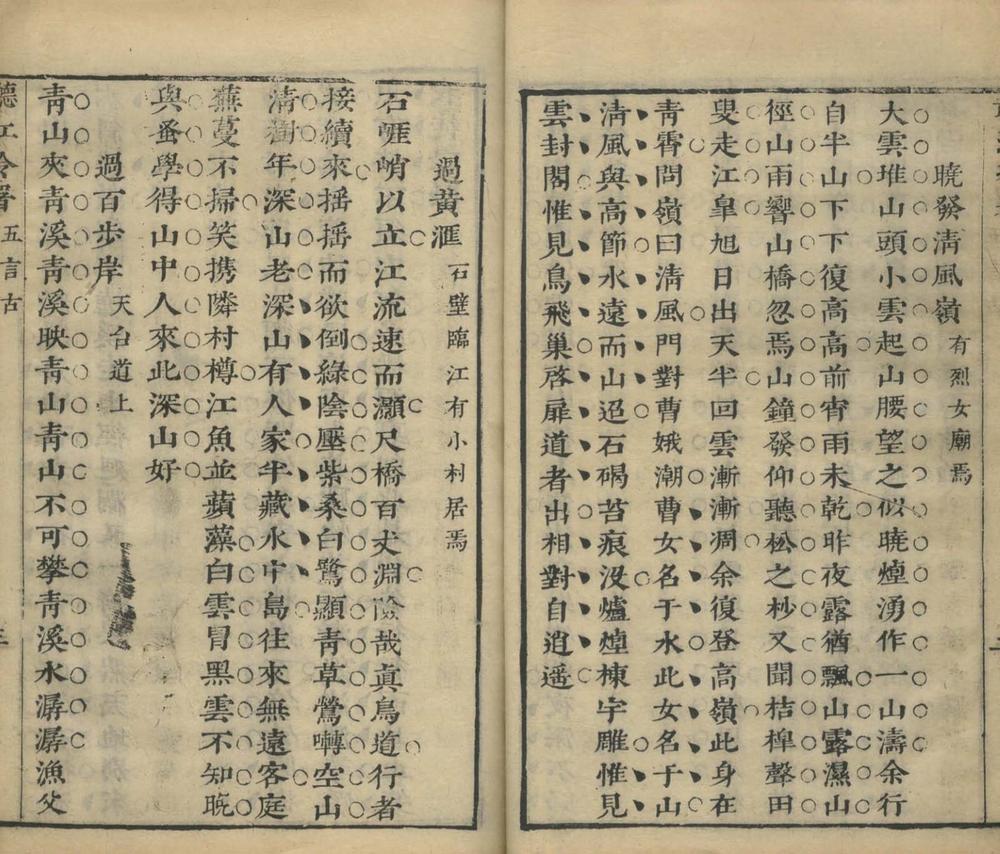 曉發清風嶺有烈女廟焉
大雲堆山頭小雲起山腰望之似曉煙湧作一山濤余行
自半山下下復高高前宵雨未乾昨夜露猶飄山露濕山
徑山雨響山橋忽焉山鐘發仰聽松之杪又聞桔槔聲田
叟走江皐旭日出天半回雲漸漸凋余復登高嶺此身在
靑霄問嶺曰淸風門對曹娥潮曹女名于水此女名于山
淸風與高節水遠而山迢石碣苔痕沒爐煙棟宇雕惟見
雲封閣惟見鳥飛巢啓扉道者出相對自逍遥
過黃滙石壁臨江有小村居焉
石崕峭以立江流速而灝尺橋百丈淵險哉眞鳥道行者
接續來揺揺而欲倒綠陰壓柴桑白鷺顯靑草鶯囀空山
淸樹年深山老深山有人家半藏水中島往來無遠客庭
蕪蔓不掃笑携隣村樽江魚並蘋藻白雲冒黑雲不知晩
與蚤學得山中人來此深山好
過百步岸天台道上
靑山夾靑溪靑溪映靑山靑山不可攀靑溪水潺潺漁父
五言古